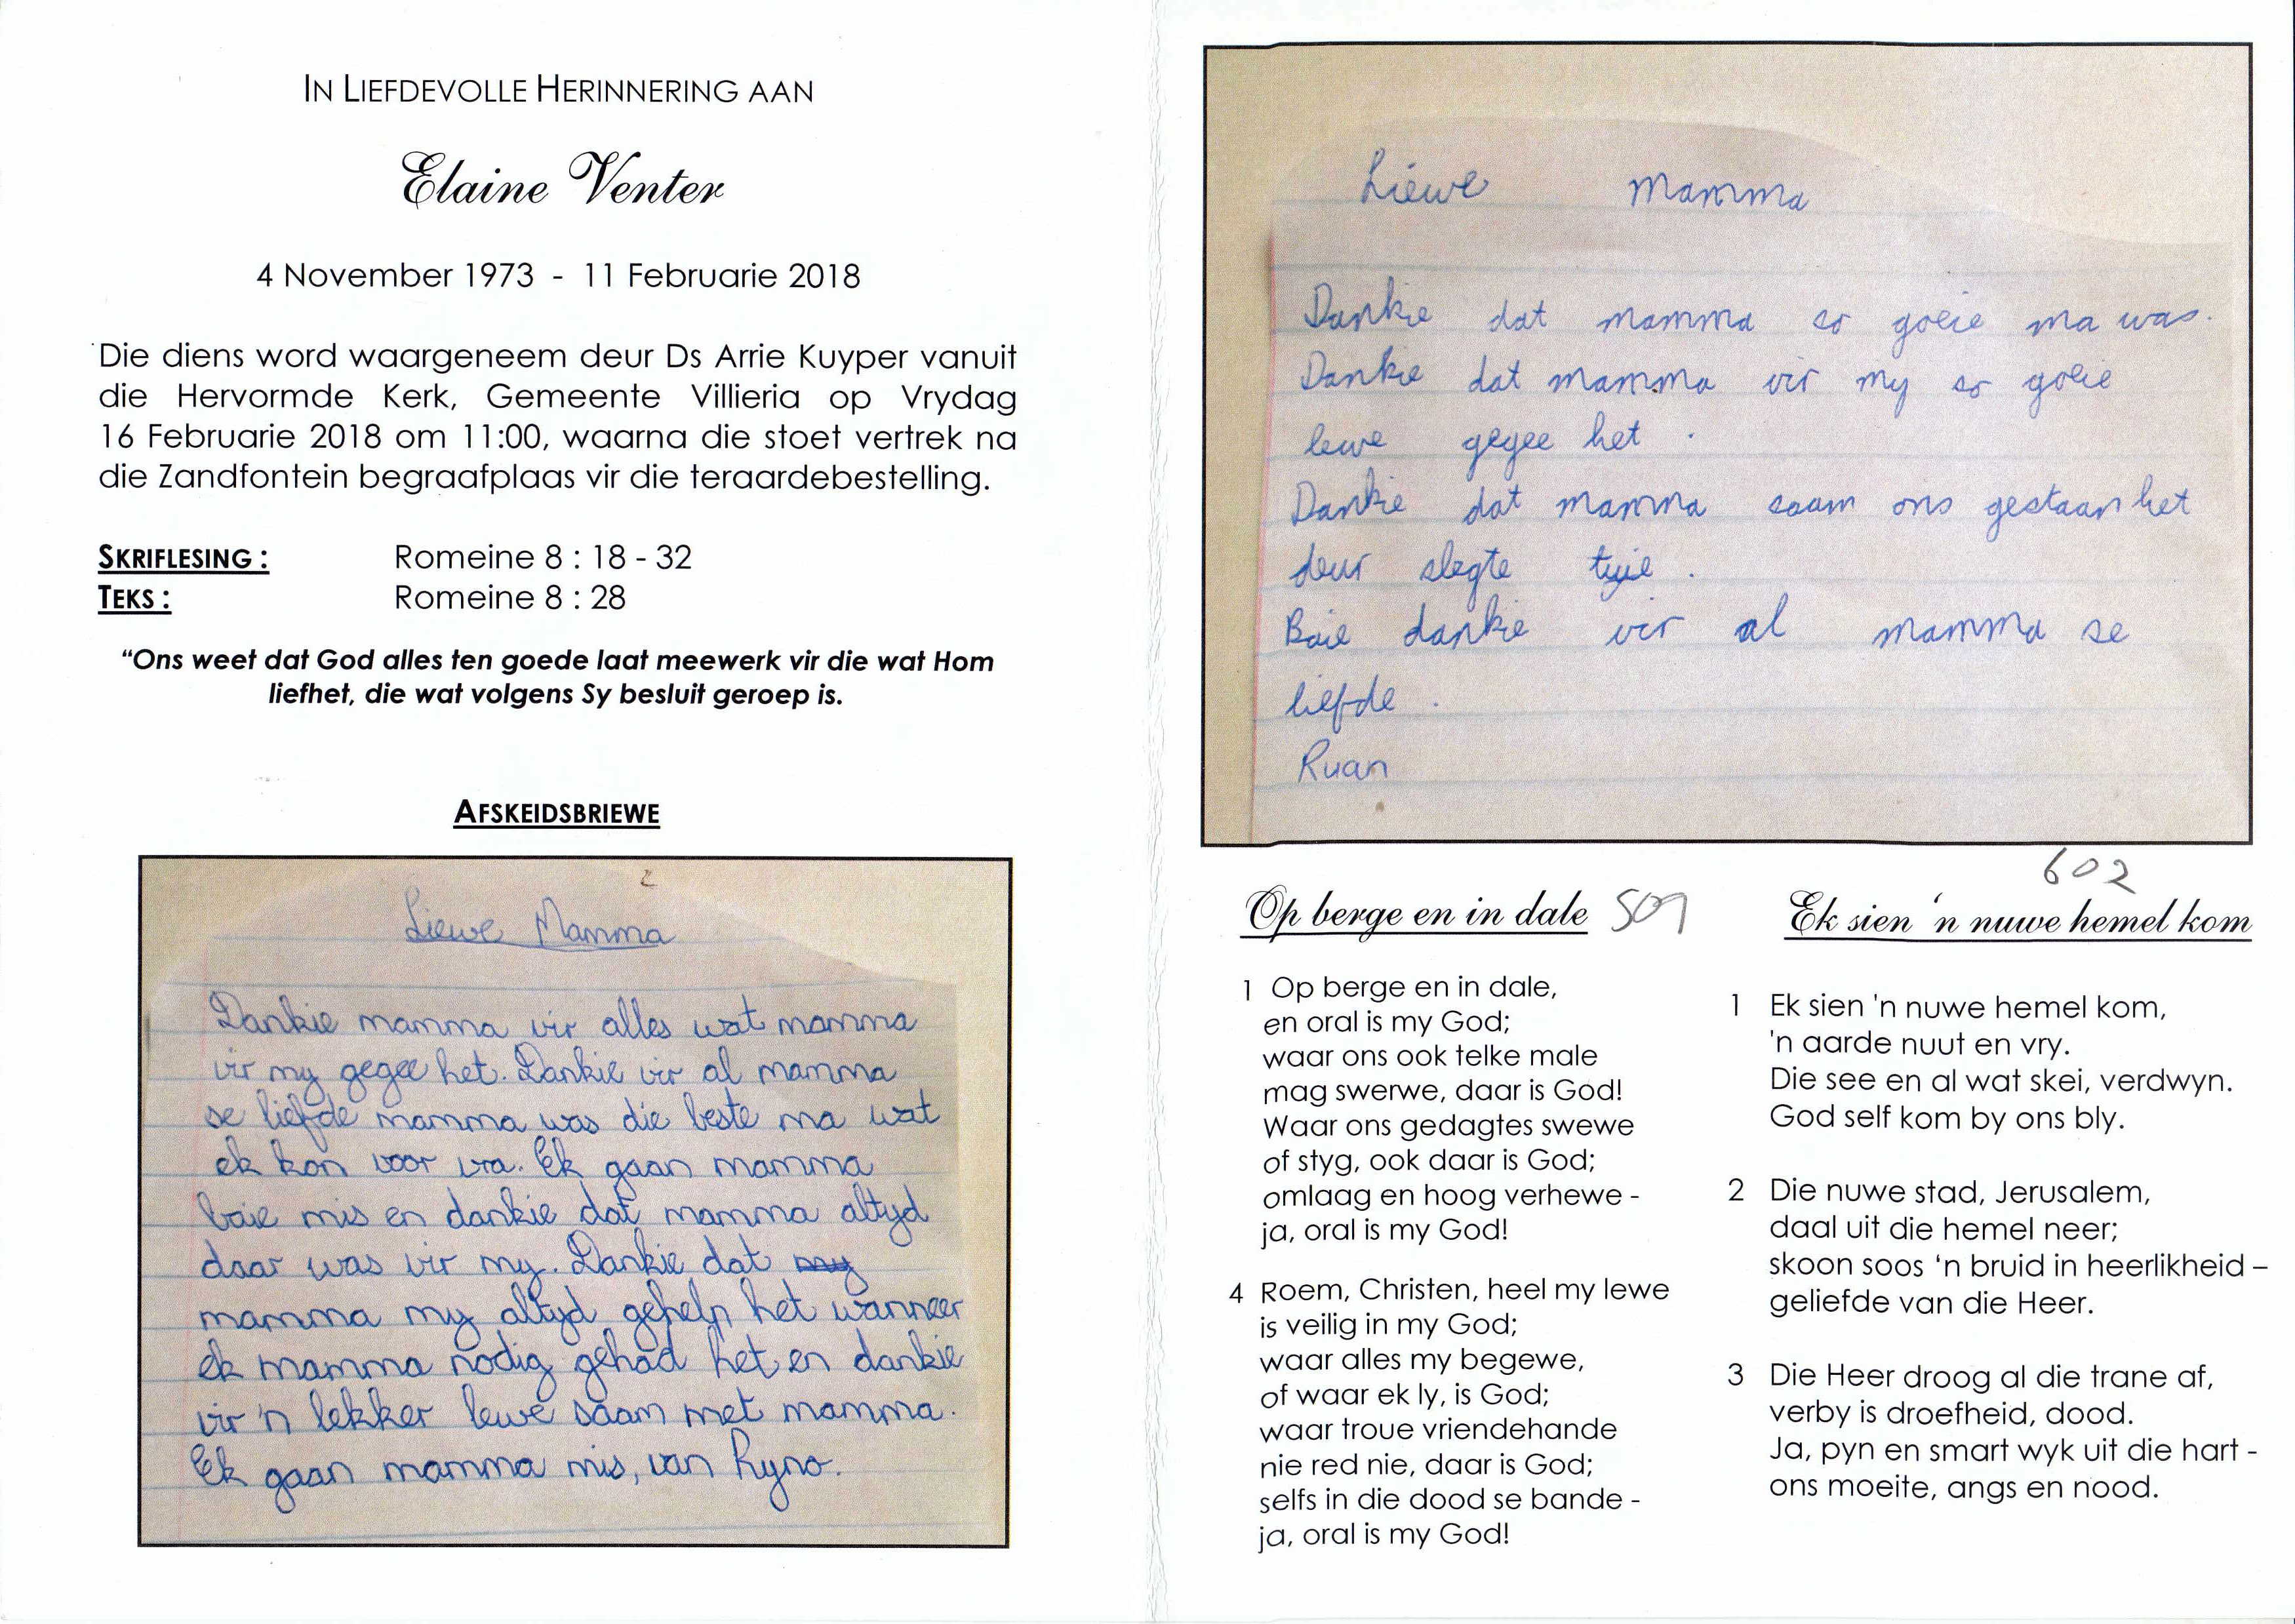 IN LIEFDEVOLLE HERINNERING AAN
Elaine Venter
4 November 1973 - 11 Februarie 2018
Die diens word waargeneem deur Ds Arrie Kuyper vanuit
die Hervormde Kerk, Gemeente Villieria op Vrydag
16 Februarie 2018 om 11:00, waarna die stoet vertrek na
die Zandfontein begraafplaas vir die teraardebestelling.
SKRIFLESING : Romeine 8 : 18 - 32
TEKS : Romeine 8 : 28
“Ons weet dat God alles ten goede laat meewerk vir die wat Hom
liefhet, die wat volgens Sy besluit geroep is.
AFSKEIDSBRIEWE
Liewe Mamma
Dankie mamma vir alles wat mamma
vir my gegee het. Dankie vir al mamma
se liefde mamma was die beste ma wat
ek kon voor vra. Ek gaan mamma
baie mis en dankie dat mamma altyd
daar was vir my. Dankie dat my
mamma my altyd gehelp het wanneer
ek mamma nodig gehad het en dankie
vir 'n lekker lewe saam met mamma.
Ek gaan mamma mis, van Ryno.
Liewe Mamma
Dankie dat mamma so goeie ma was.
Dankie dat mamma vir my so goeie
lewe gegee het.
Dankie dat mamma saam ons gestaan het
deur slegte tyie.
Baie dankie vir al mamma se
liefde.
Ruan
Op berge en in dale 509
1 Op berge en in dale,
en oral is my God;
waar ons ook telke male
mag swerwe, daar is God!
Waar ons gedagtes swewe
of styg, ook daar is God;
omlaag en hoog verhewe -
ja, oral is my God!
4 Roem, Christen, heel my lewe
is veilig in my God;
waar alles my begewe,
of waar ek ly, is God;
waar troue vriendehande
nie red nie, daar is God;
selfs in die dood se bande -
ja, oral is my God!
602
Ek sien 'n nuwe hemel kom
1 Ek sien 'n nuwe hemel kom,
'n aarde nuut en vry.
Die see en al wat skei, verdwyn.
God self kom by ons bly.
2 Die nuwe stad, Jerusalem,
daal uit die hemel neer;
skoon soos ‘n bruid in heerlikheid –
geliefde van die Heer.
3 Die Heer droog al die trane af,
verby is droefheid, dood.
Ja, pyn en smart wyk uit die hart -
ons moeite, angs en nood.